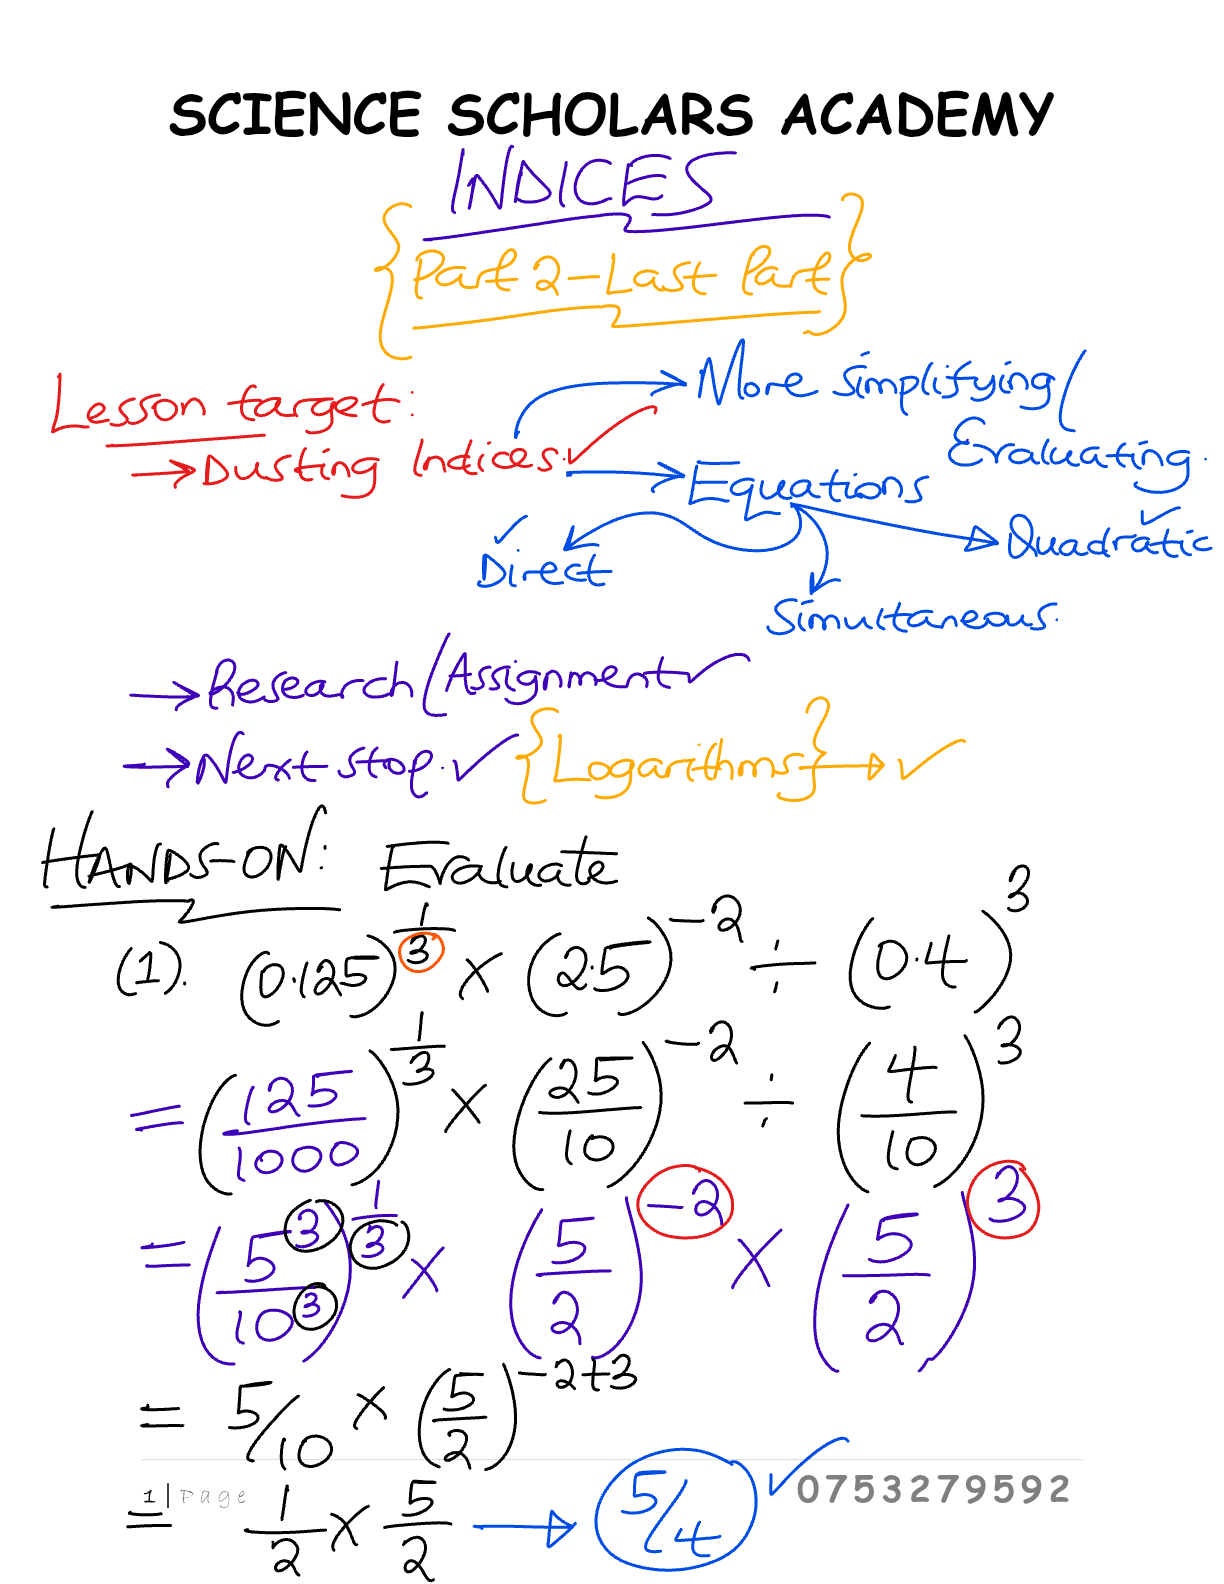 SCIENCE SCHOLARS ACADEMY
INDICES
{Part 2 - Last Part}
Lesson target:
→ Dusting Indices ✓
→ More simplifying/
Evaluating.
→ Equations
✓ Direct
Quadratic ✓
Simultaneous.
→ Research/Assignment ✓
→ Next stop. ✓ {Logarithms} → ✓
HANDS-ON: Evaluate
(1). (0.125)^(1/3) × (2.5)^(-2) ÷ (0.4)^3
= (125/1000)^(1/3) × (25/10)^(-2) ÷ (4/10)^3
= (5^3/10^3)^(1/3) × (5/2)^(-2) × (5/2)^3
= 5/10 × (5/2)^(-2+3)
= 1/2 × 5/2 → 5/4 ✓
1 | Page
0753279592